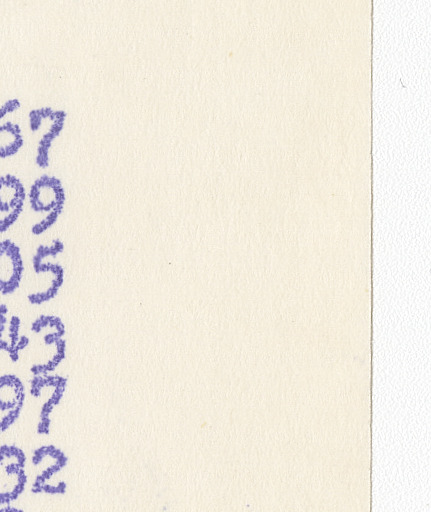 67
99
05
43
97
32